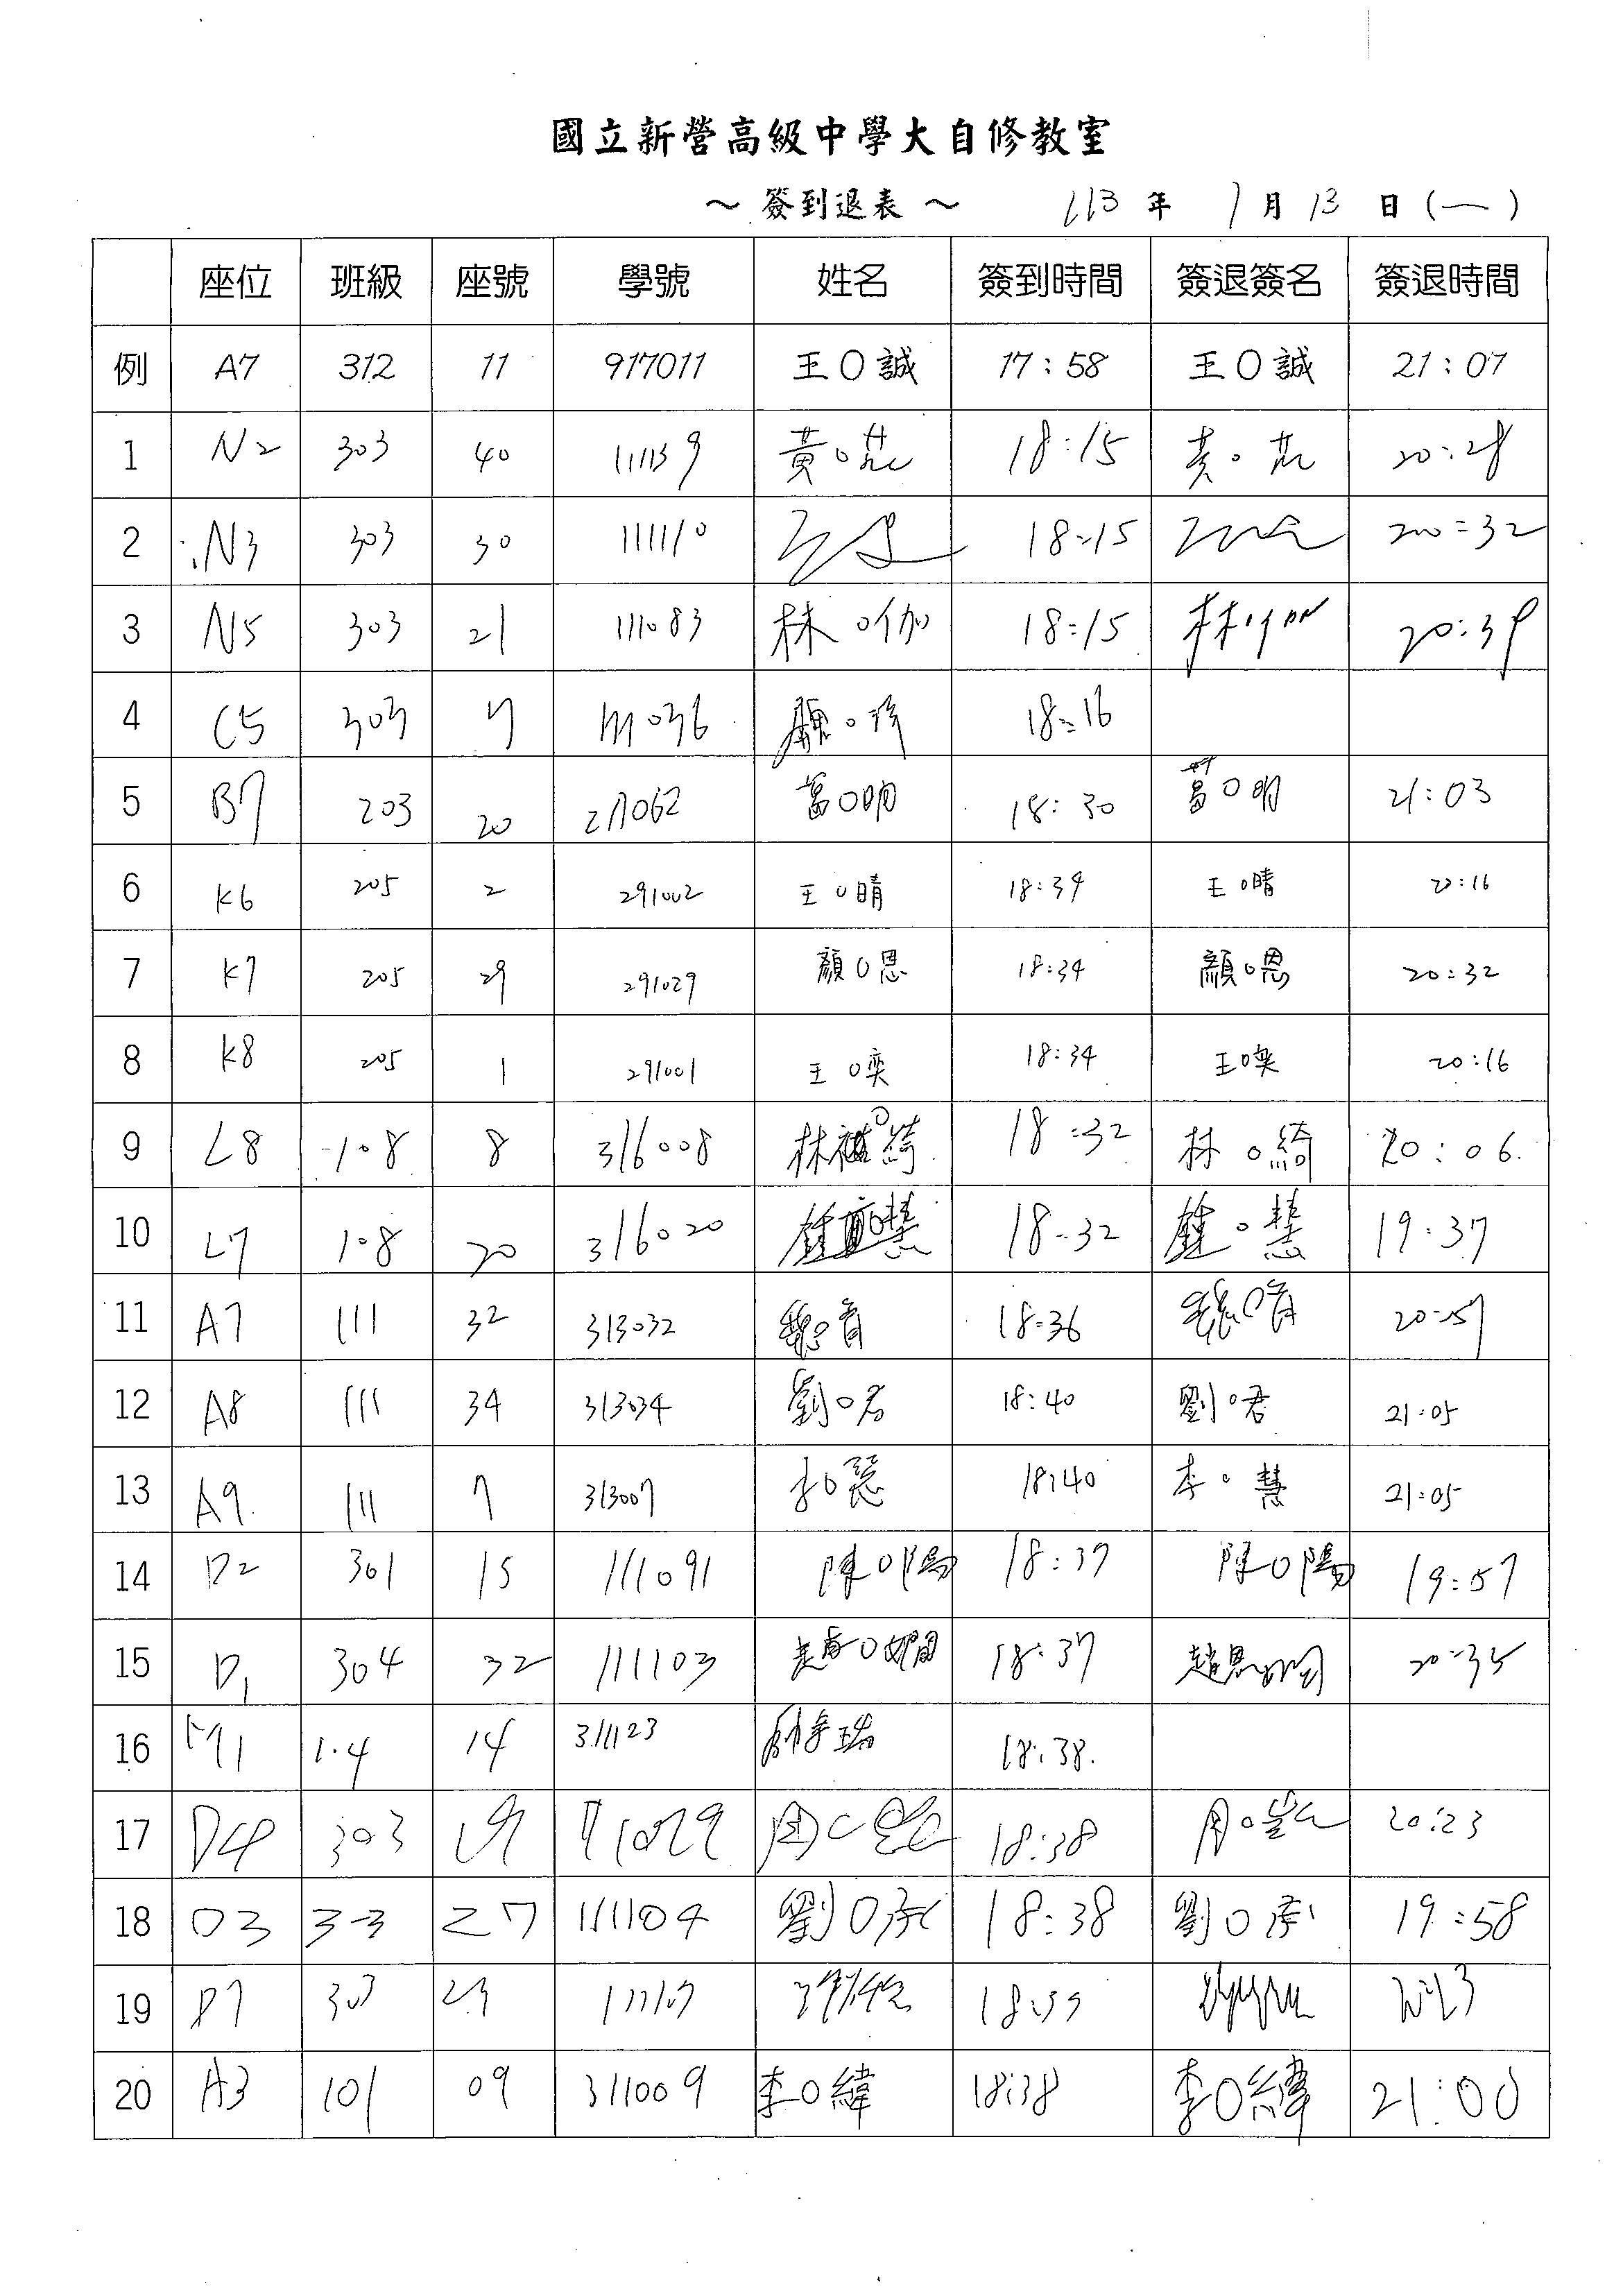 國立新營高級中學大自修教室
~ 簽到退表 ~ 113 年 1 月 13 日 (一)
座位 班級 座號 學號 姓名 簽到時間 簽退簽名 簽退時間
例 A7 312 11 917011 王O誠 17:58 王O誠 21:07
1 N2 303 40 111139 黃O 18:15 黃O 20:28
2 N3 303 30 111110 18:15 20:32
3 N5 303 21 111083 林O伽 18:15 林 20:39
4 C5 303 7 111036 顏O 18:16
5 B7 203 20 211062 葛O明 18:30 葛O明 21:03
6 K6 205 2 291002 王O晴 18:34 王O晴 20:16
7 K7 205 29 291029 顏O恩 18:34 顏O恩 20:32
8 K8 205 1 291001 王O奕 18:34 王O奕 20:16
9 L8 108 8 316008 林O綺 18:32 林O綺 20:06
10 L7 108 20 316020 鍾O慧 18:32 鍾O慧 19:37
11 A7 111 32 313032 18:36 20:57
12 A8 111 34 313034 劉O君 18:40 劉O君 21:05
13 A9 111 7 313007 李O慧 18:40 李O慧 21:05
14 D2 301 15 111091 陳O陽 18:37 陳O陽 19:57
15 D1 304 32 111103 趙O嫺 18:37 趙 20:35
16 M1 104 14 311123 18:38
17 D4 303 19 周O 18:38 周O 20:23
18 D3 303 27 111104 劉O承 18:38 劉O承 19:58
19 303 18:37
20 A3 101 09 311009 李O緯 18:38 李O緯 21:00